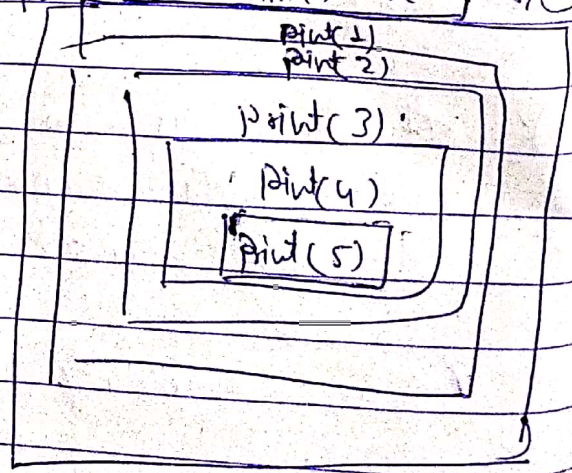 print(1)
print(2)
print(3)
print(4)
print(5)